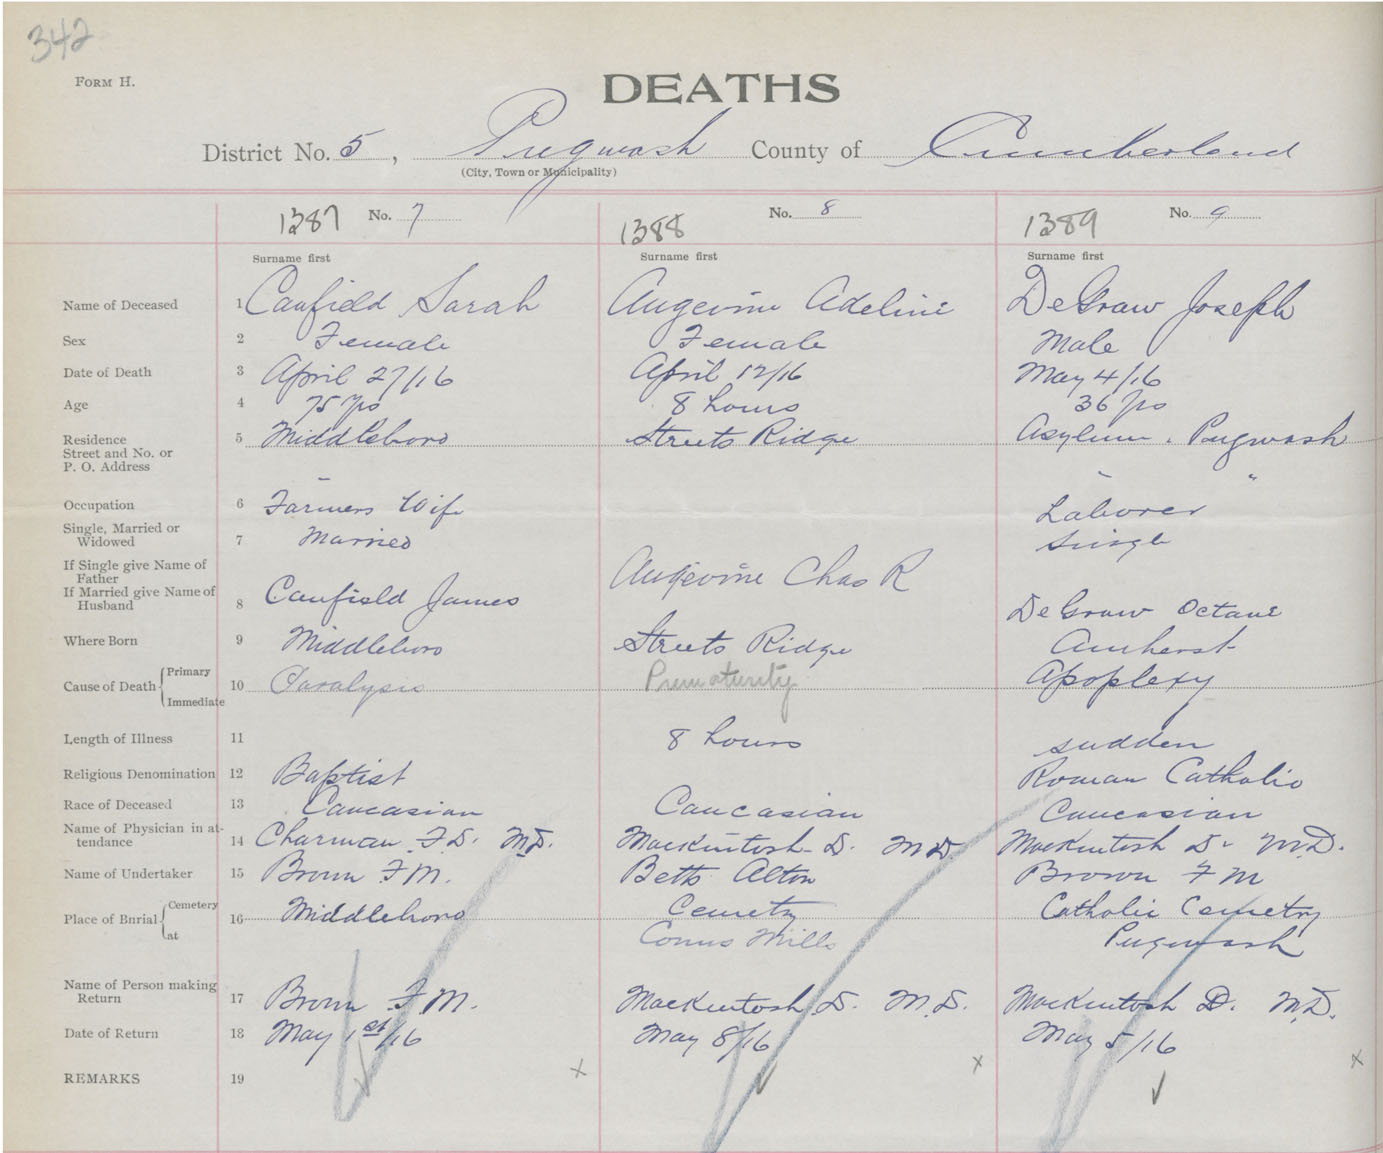 342
FORM H.
DEATHS
District No. 5, Pugwash County of Cumberland
(City, Town or Municipality)
1387 No. 7
1388 No. 8
1389 No. 9
Surname first Surname first Surname first
Name of Deceased 1 Canfield Sarah Angevine Adeline DeGraw Joseph
Sex 2 Female Female Male
Date of Death 3 April 27/16 April 12/16 May 4/16
Age 4 75 yrs 8 hours 36 yrs
Residence 5 Middleboro Streets Ridge Asylum. Pugwash
Street and No. or
P. O. Address " "
Occupation 6 Farmers Wife Laborer
Single, Married or
Widowed 7 Married Single
If Single give Name of
Father Angevine Chas R
If Married give Name of
Husband 8 Canfield James DeGraw Octave
Where Born 9 Middleboro Streets Ridge Amherst
Cause of Death { Primary
10 Paralysis Prematurity Apoplexy
Immediate
Length of Illness 11 8 hours sudden
Religious Denomination 12 Baptist Roman Catholic
Race of Deceased 13 Caucasian Caucasian Caucasian
Name of Physician in at-
tendance 14 Charman F.D. M.D. Mackintosh D. M.D. Mackintosh D. M.D.
Name of Undertaker 15 Brown F.M. Betts Alton Brown F M
Place of Burial { Cemetery
16 Middleboro Cemetry Catholic Cemetry
at Conns Mills Pugwash
Name of Person making
Return 17 Brown F.M. Mackintosh D. M.D. Mackintosh D. M.D.
Date of Return 18 May 1st/16 May 8/16 May 5/16
REMARKS 19 x x x